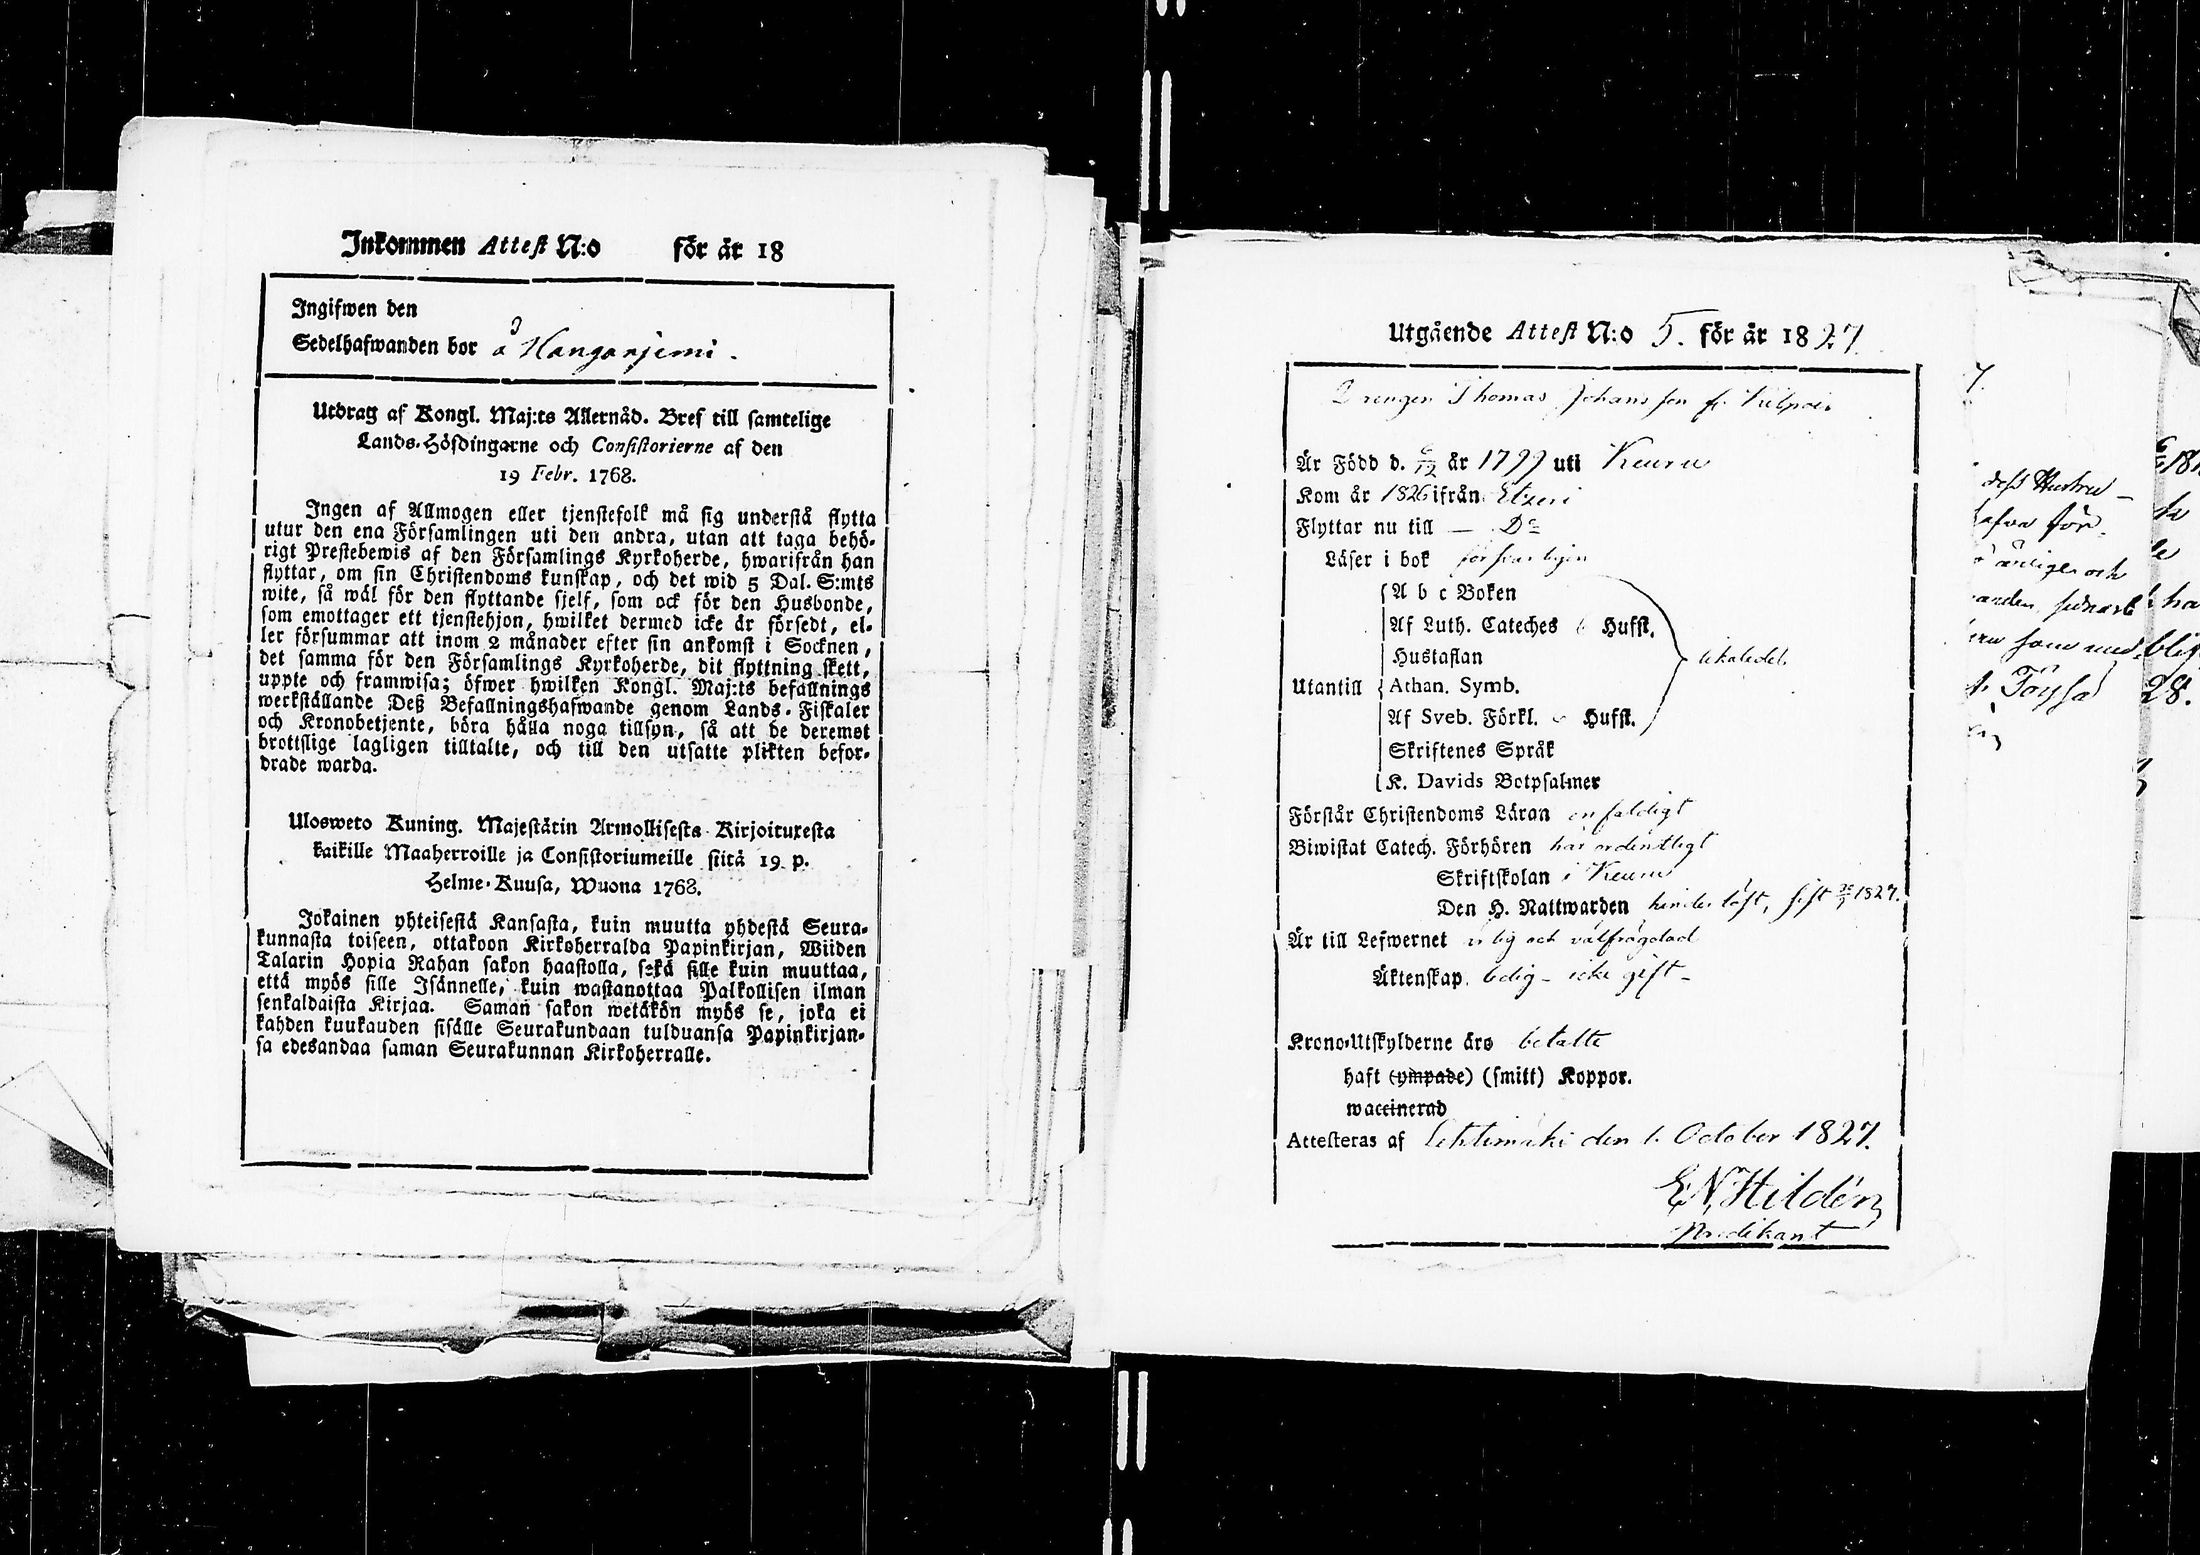 Inkommen Attest N:o för år 18
Ingifwen den
Sedelhafwanden bor å Hanganjemi.
Utdrag af Kongl. Maj:ts Allernåd. Bref till samtelige
Lands-Höfdingarne och Consistorierne af den
19 Febr. 1768.
Ingen af Allmogen eller tjenstefolk må sig understå flytta
utur den ena Församlingen uti den andra, utan att taga behö-
rigt Prestebewis af den Församlings Kyrkoherde, hwarifrån han
flyttar, om sin Christendoms kunskap, och det wid 5 Dal. S:mts
wite, så wäl för den flyttande sjelf, som ock för den Husbonde,
som emottager ett tjenstehjon, hwilket dermed icke är försedt, el-
ler försummar att inom 2 månader efter sin ankomst i Socknen,
det samma för den Församlings Kyrkoherde, dit flyttning skett,
uppte och framwisa; öfwer hwilken Kongl. Maj:ts befallnings
werkställande Deß Befallningshafwande genom Lands-Fiskaler
och Kronobetjente, böra hålla noga tillsyn, så att de deremot
brottslige lagligen tilltalte, och till den utsatte plikten befor-
drade warda.
Ulosweto Kuning. Majestätin Armollisesta Kirjoituxesta
kaikille Maaherroille ja Consistoriumeille siitä 19 p.
Helme-Kuusa, Wuona 1768.
Jokainen yhteisestä Kansasta, kuin muutta yhdestä Seura-
kunnasta toiseen, ottakoon Kirkoherralda Papinkirjan, Wiiden
Talarin Hopia Rahan sakon haastolla, sekä sille kuin muuttaa,
että myös sille Isännelle, kuin wastanottaa Palkollisen ilman
senkaldaista Kirjaa. Saman sakon wetäkön myös se, joka ei
kahden kuukauden sisälle Seurakundaan tulduansa Papinkirjan-
sa edesandaa saman Seurakunnan Kirkoherralle.
Utgående Attest N:o 5. för år 1827.
Drengen Thomas Johansson fr.
Är Född d. 6/12 år 1799 uti Keuru
Kom år 1826 ifrån Etzeri
Flyttar nu till — Do
Läser i bok försvarligen
A b c Boken
Af Luth. Cateches Hufst.
Hustaflan
Utantill Athan. Symb. likaledes
Af Sveb. Förkl. Hufst.
Skriftenes Språk
K. Davids Botpsalmer
Förstår Christendoms Läran enfaldigt
Biwistat Catech. Förhören här ordentligt
Skriftskolan i Keuru
Den H. Nattwarden hinderlöst, sist 1827.
Är till Lefwernet ärlig och välfrägdad
Äktenskap ledig - icke gift -
Krono-Utskylderne äro betalte
haft (ympade) (smitt) Koppor.
waccinerad
Attesteras af Lehtimäki den 1. October 1827.
E N Hildén
Predikant
7.
dess Hustru -
och
Töysä
28.